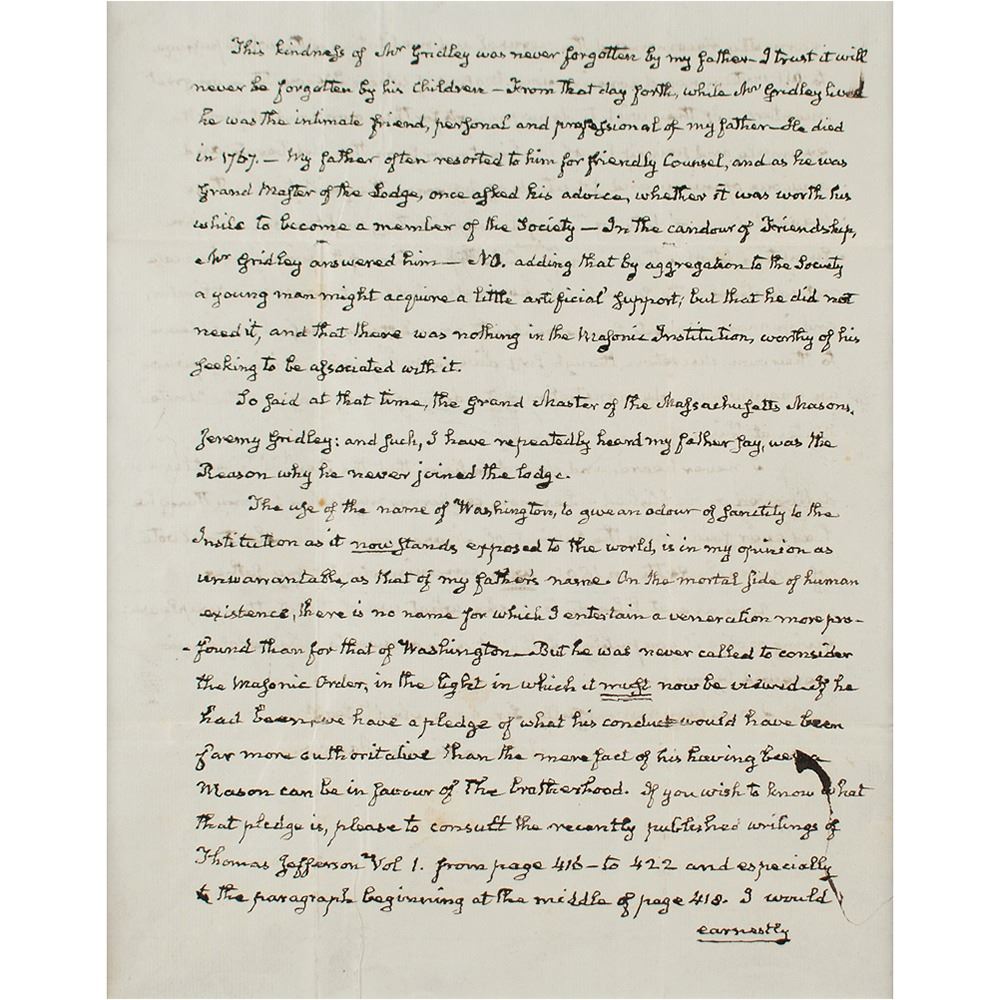 This kindness of Mr Gridley was never forgotten by my father – I trust it will
never be forgotten by his Children – From that day forth, while Mr Gridley lived
he was the intimate friend, personal and professional of my father – He died
in 1767. – My father often resorted to him for friendly Counsel, and as he was
Grand Master of the Lodge, once asked his advice, whether it was worth his
while to become a member of the Society – In the candour of Friendship,
Mr Gridley answered him – NO. adding that by aggregation to the Society
a young man might acquire a little artificial support; but that he did not
need it, and that there was nothing in the Masonic Institution, worthy of his
seeking to be associated with it.
So said at that time, the Grand Master of the Massachusetts Masons,
Jeremy Gridley; and such, I have repeatedly heard my father say, was the
Reason why he never joined the lodge.
The use of the name of Washington, to give an odour of sanctity to the
Institution as it now stands exposed to the world, is in my opinion as
unwarrantable, as that of my father's name. On the mortal side of human
existence, there is no name for which I entertain a veneration more pro-
- found than for that of Washington – But he was never called to consider
the Masonic Order, in the light in which it must now be viewed – If he
had been, we have a pledge of what his conduct would have been
far more authoritative than the mere fact of his having been a
Mason can be in favour of the brotherhood. If you wish to know what
that pledge is, please to consult the recently published writings of
Thomas Jefferson Vol 1. from page 416 – to 422 and especially
to the paragraph beginning at the middle of page 418. I would
earnestly